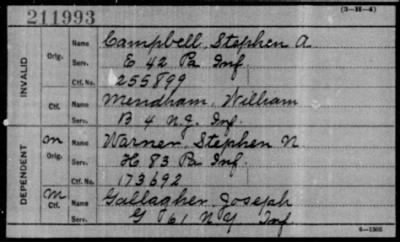 211993
(3-H-4)
INVALID
Orig.
Name Campbell, Stephen A
Serv. E 42 Pa Inf.
Ctf. No. 255899
Ctf.
Name Mendham, William
Serv. B 4 N.J. Inf.
DEPENDENT
m
Orig.
Name Warner, Stephen N
Serv. H 83 Pa Inf.
Ctf. No. 173692
M
Ctf.
Name Gallagher, Joseph
Serv. G 61 N Y Inf